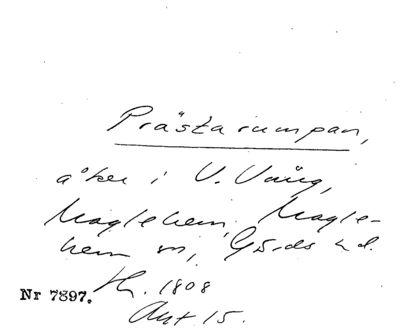 Prästarumpan,
åker i V. Vång,
Maglehem, Magle-
hem sn, Gärds hd.
Nr 7897. 1808
Akt 15.